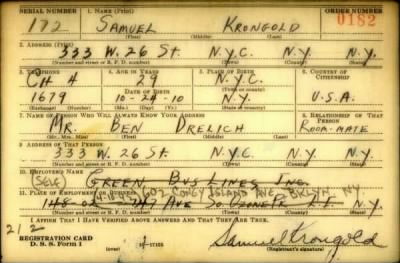 SERIAL NUMBER
1. NAME (Print)
ORDER NUMBER
172
SAMUEL KRONGOLD
0182
(First) (Middle) (Last)
2. ADDRESS (Print)
333 W. 26 St. N.Y.C. N.Y. N.Y.
(Number and street or R. F. D. number) (Town) (County) (State)
3. TELEPHONE
4. AGE IN YEARS
5. PLACE OF BIRTH
6. COUNTRY OF CITIZENSHIP
CH 4
29
N.Y.C.
1679
DATE OF BIRTH
10-24-10
N.Y.
U.S.A.
(Exchange) (Number) (Mo.) (Day) (Yr.) (State or country)
7. NAME OF PERSON WHO WILL ALWAYS KNOW YOUR ADDRESS
8. RELATIONSHIP OF THAT PERSON
MR. BEN DRELICH
ROOM-MATE
(Mr., Mrs., Miss) (First) (Middle) (Last)
9. ADDRESS OF THAT PERSON
333 W. 26 St. N.Y.C. N.Y. N.Y.
(Number and street or R. F. D. number) (Town) (County) (State)
10. EMPLOYER'S NAME
(SELF) GREEN BUS LINES INC.
11. PLACE OF EMPLOYMENT
602 CONEY ISLAND AVE BKLYN, NY.
148-02 AVE SO OZONE PK L.I. N.Y.
(Number and street or R. F. D. number) (Town) (County) (State)
I AFFIRM THAT I HAVE VERIFIED ABOVE ANSWERS AND THAT THEY ARE TRUE.
212
REGISTRATION CARD
D. S. S. Form 1
Samuel Krongold
(Registrant's signature)